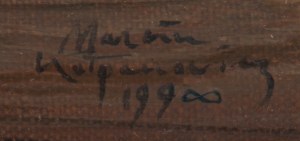 Marcin
Kołpanowicz
1998